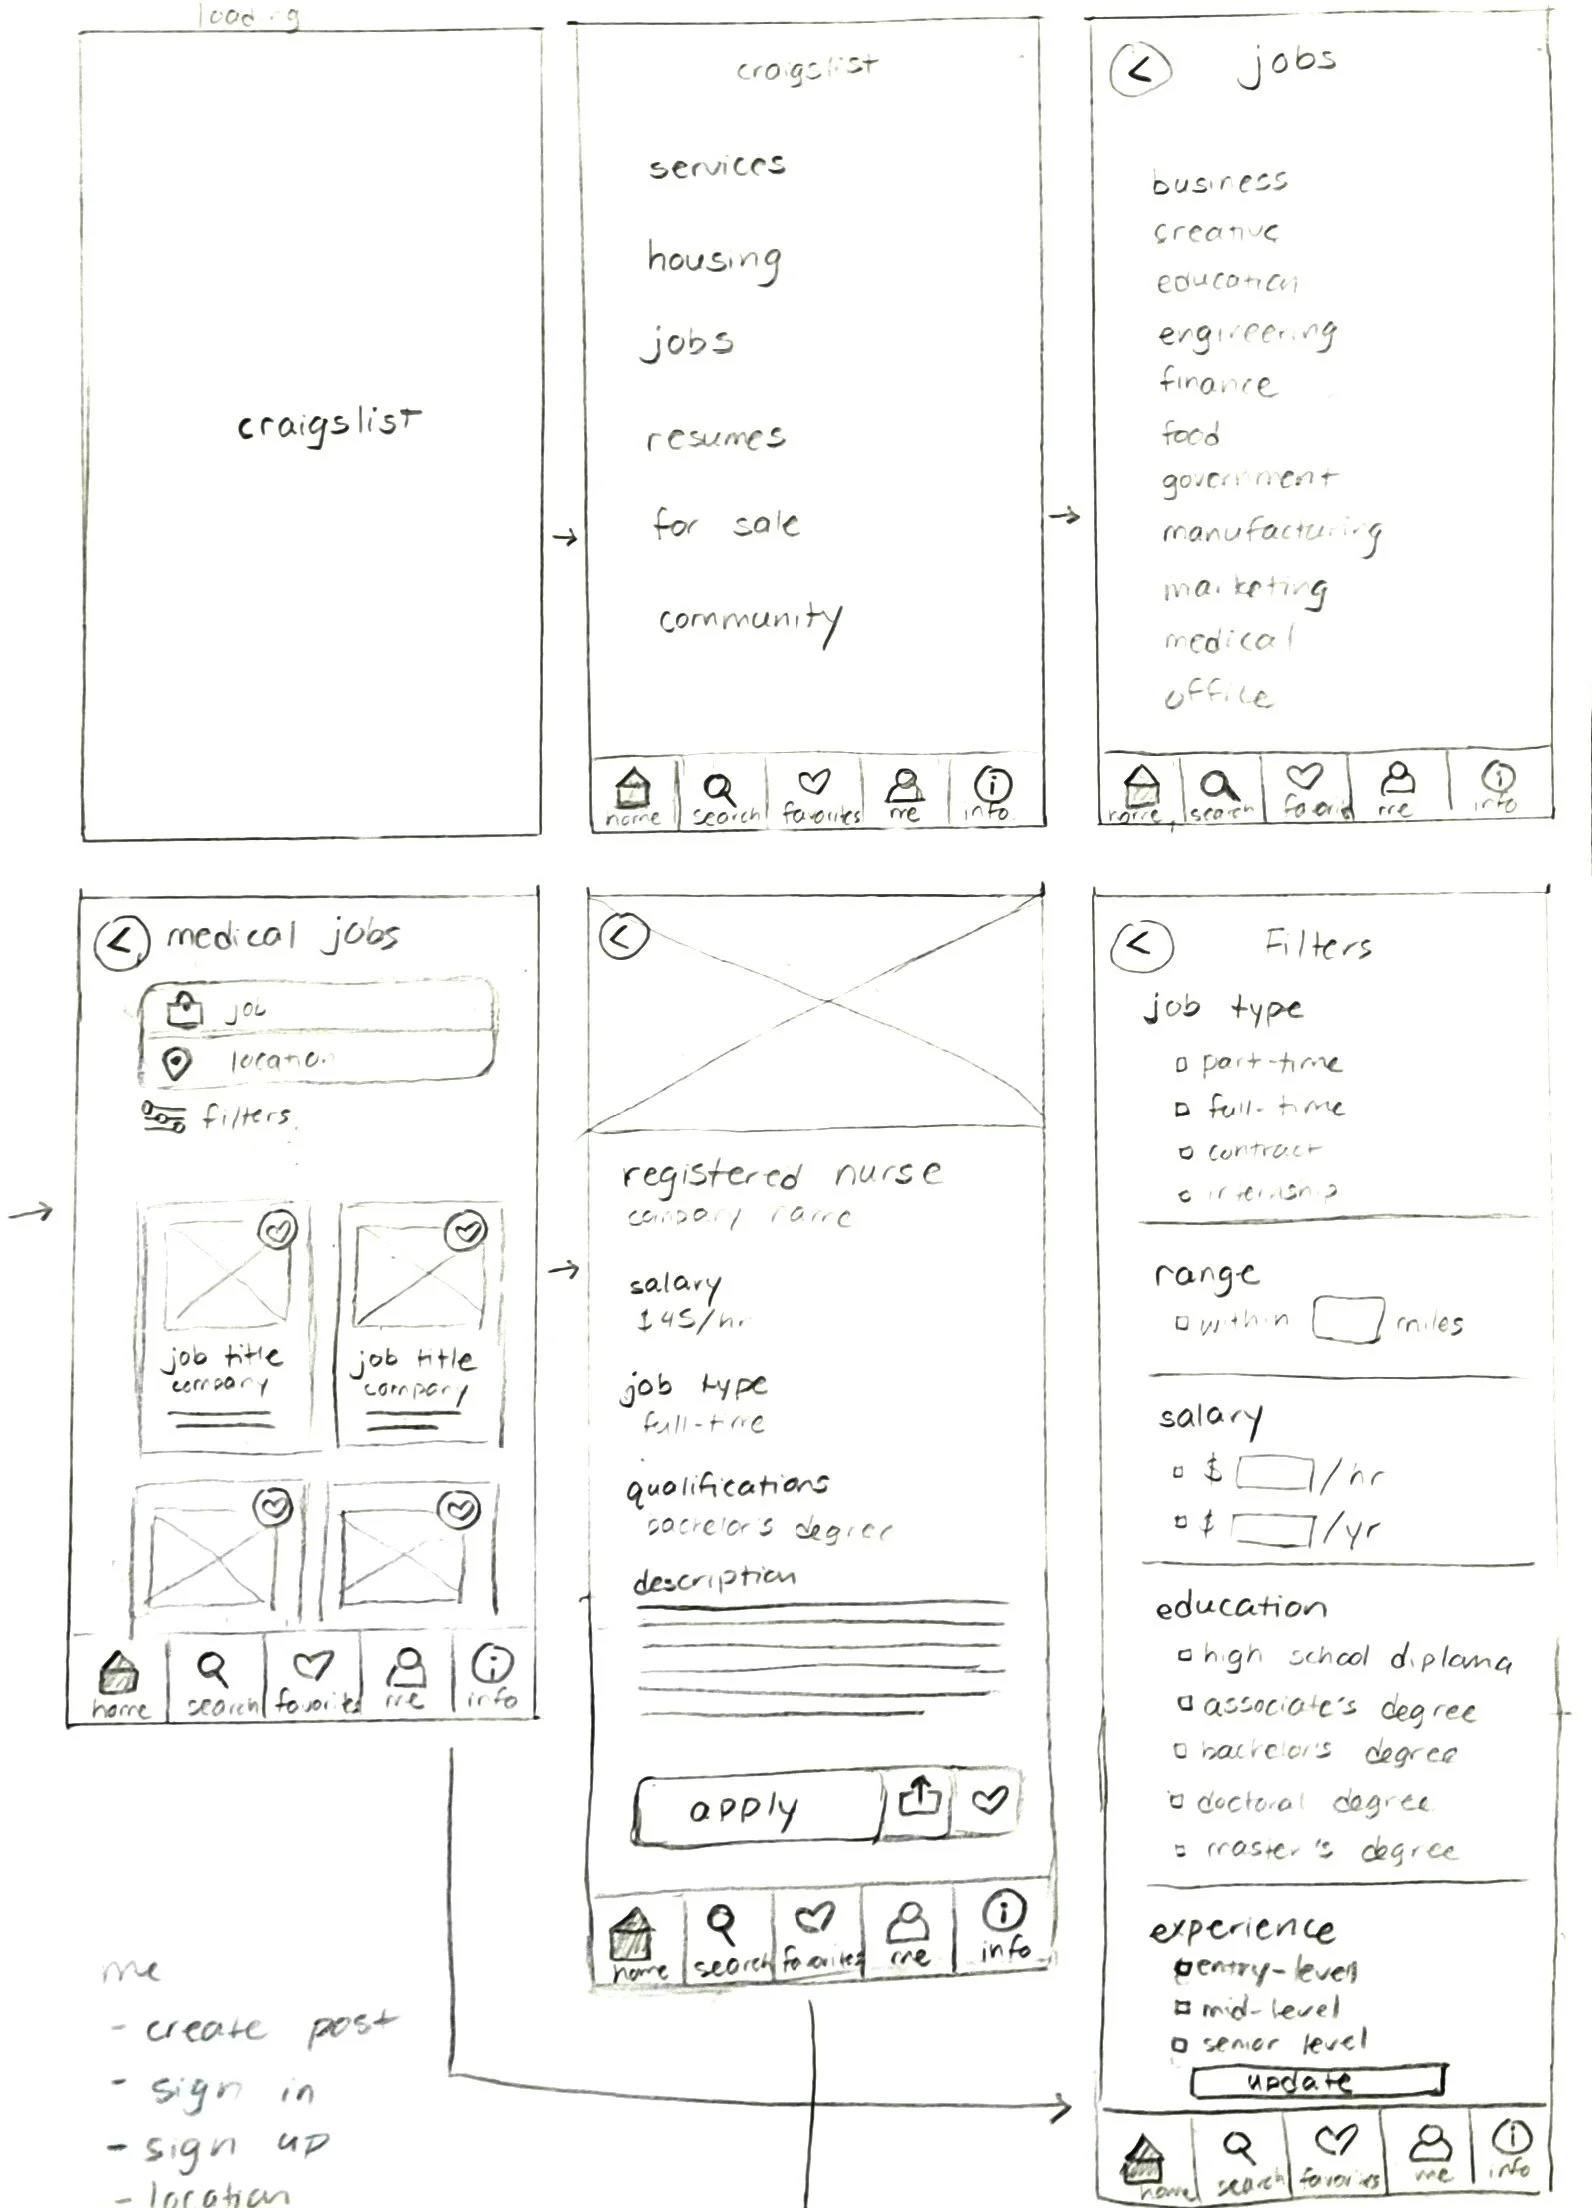 loading
craigslist
craigslist
services
housing
jobs
resumes
for sale
community
home search favorites me info
jobs
business
creative
education
engineering
finance
food
government
manufacturing
marketing
medical
office
home search favoris me info
medical jobs
job
location
filters
job title
company
job title
company
home search favorites me info
registered nurse
company name
salary
$45/hr
job type
full-time
qualifications
bachelor's degree
description
apply
home search favorites me info
Filters
job type
part-time
full-time
contract
internship
range
within miles
salary
$ /hr
$ /yr
education
high school diploma
associate's degree
bachelor's degree
doctoral degree
master's degree
experience
entry-level
mid-level
senior level
update
home search favorites me info
me
- create post
- sign in
- sign up
- location